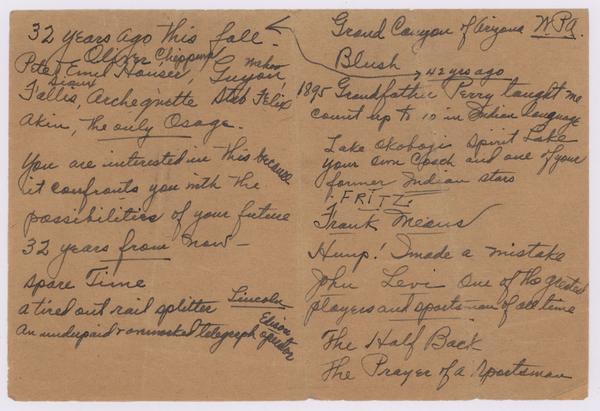 32 years ago this fall.
Oliver Chippewa
Peter, Emil Houser, Guyon,
Sioux
Fallis, Archequette Stub Felix
Akin, the only Osage.
You are interested in this because
it confronts you with the
possibilities of your future
32 years from now –
spare Time
a tired out rail splitter Lincoln
An underpaid & overworked telegraph operator
Edison
Grand Canyon of Arizona WPA.
Blush
42 yrs ago
1895 Grandfather Perry taught me
count up to 10 in Indian language
Lake Okoboji Spirit Lake
your own Coach and one of your
former Indian stars
FRITZ
Frank Means
Hump! I made a mistake
John Levi One of the greatest
players and sportsman of all time
The Half Back
The Prayer of a Sportsman